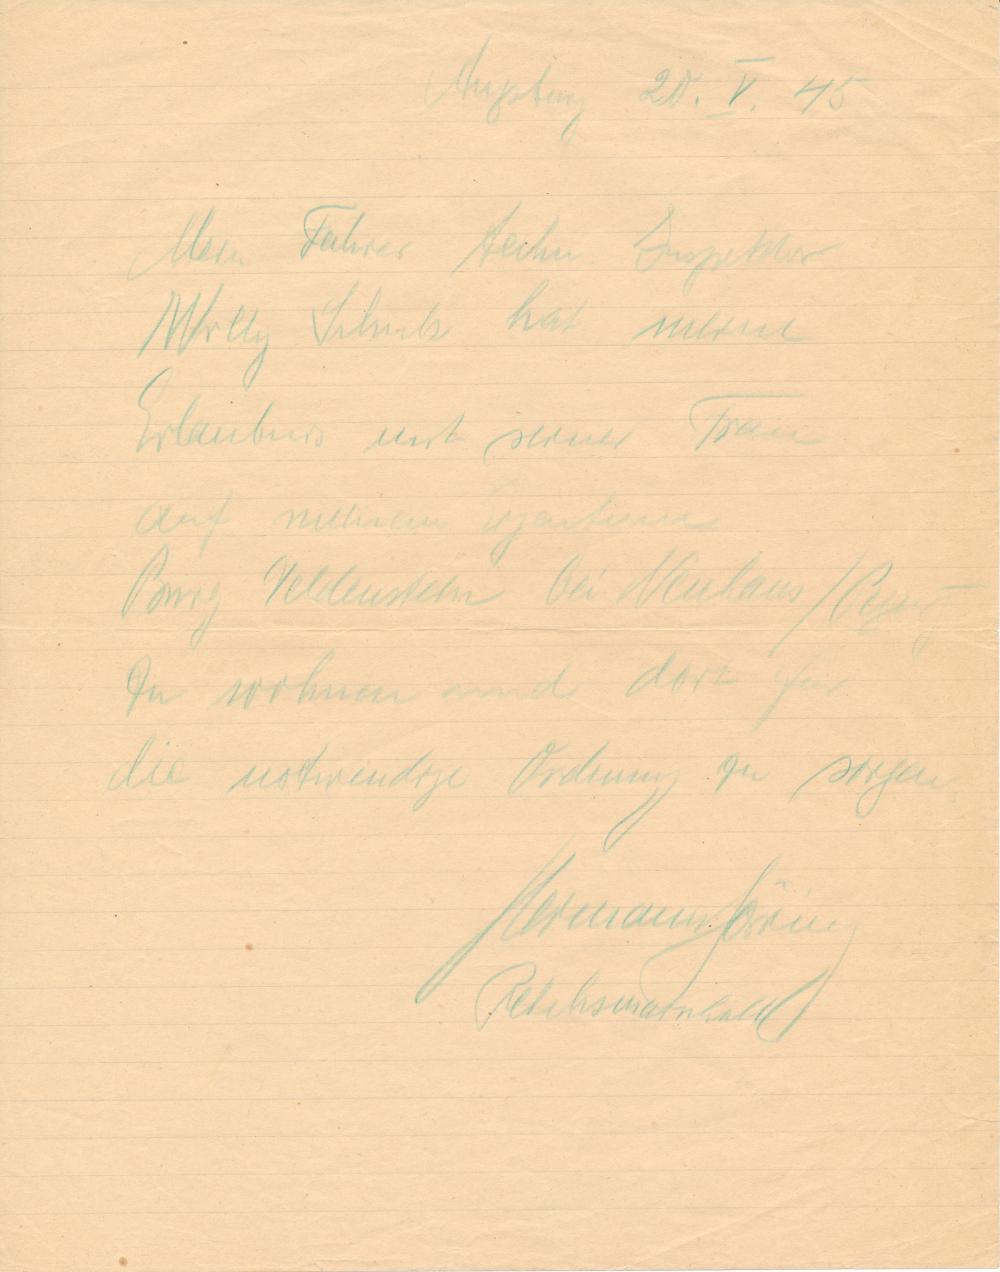 Augsburg 20. V. 45
Mein Fahrer techn. Inspektor
Willy Schulz hat meine
Erlaubnis mit seiner Frau
auf meinem Eigentum
Burg Veldenstein bei Neuhaus / Pegnitz
zu wohnen und dort für
die notwendige Ordnung zu sorgen.
Hermann Göring
Reichsmarschall